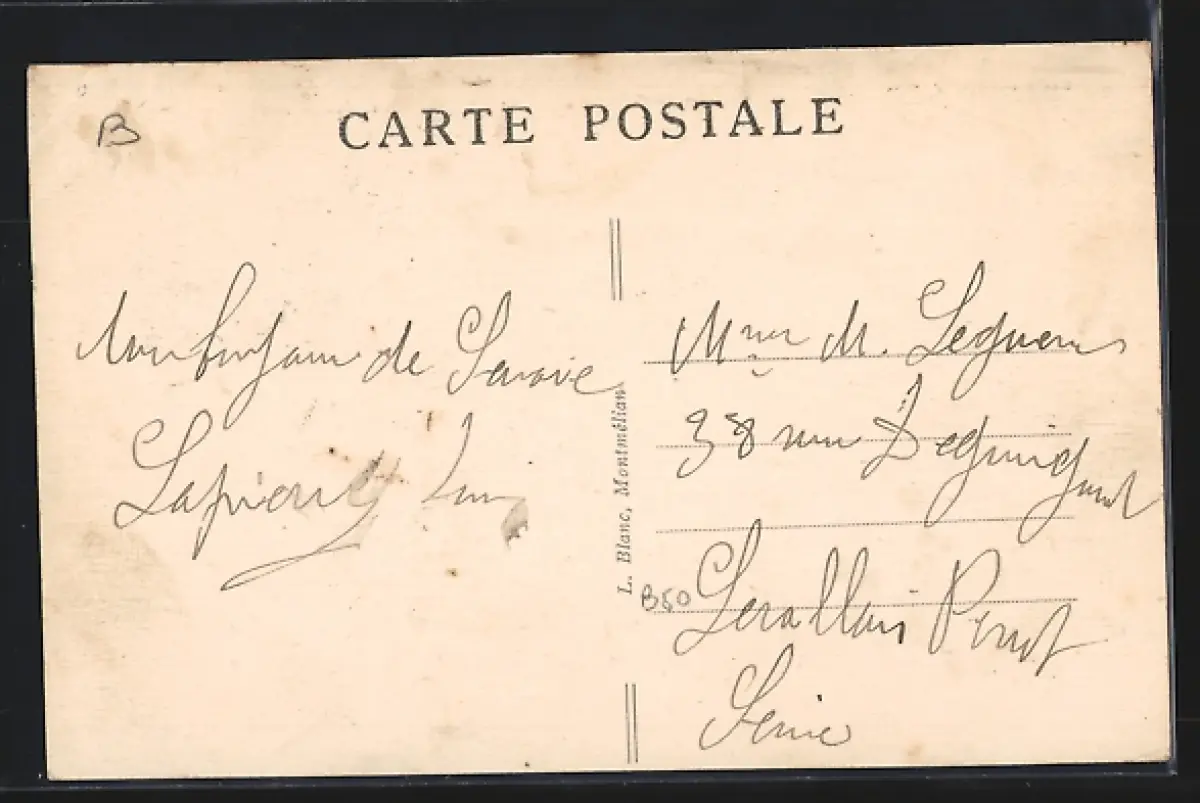 B
CARTE POSTALE
bonjour de Savoie
L. Blanc, Montmélian
Mme M.
38 rue Deguingand
B50
Levallois Perret
Seine